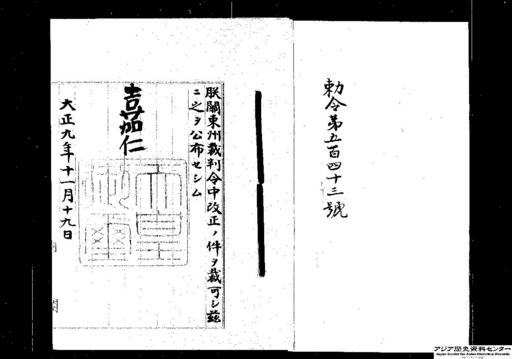 勅令第五百四十三號
朕關東州裁判令中改正ノ件ヲ裁可シ茲
ニ之ヲ公布セシム
嘉仁
天皇御璽
大正九年十一月十九日
アジア歴史資料センター
Japan Center for Asian Historical Records